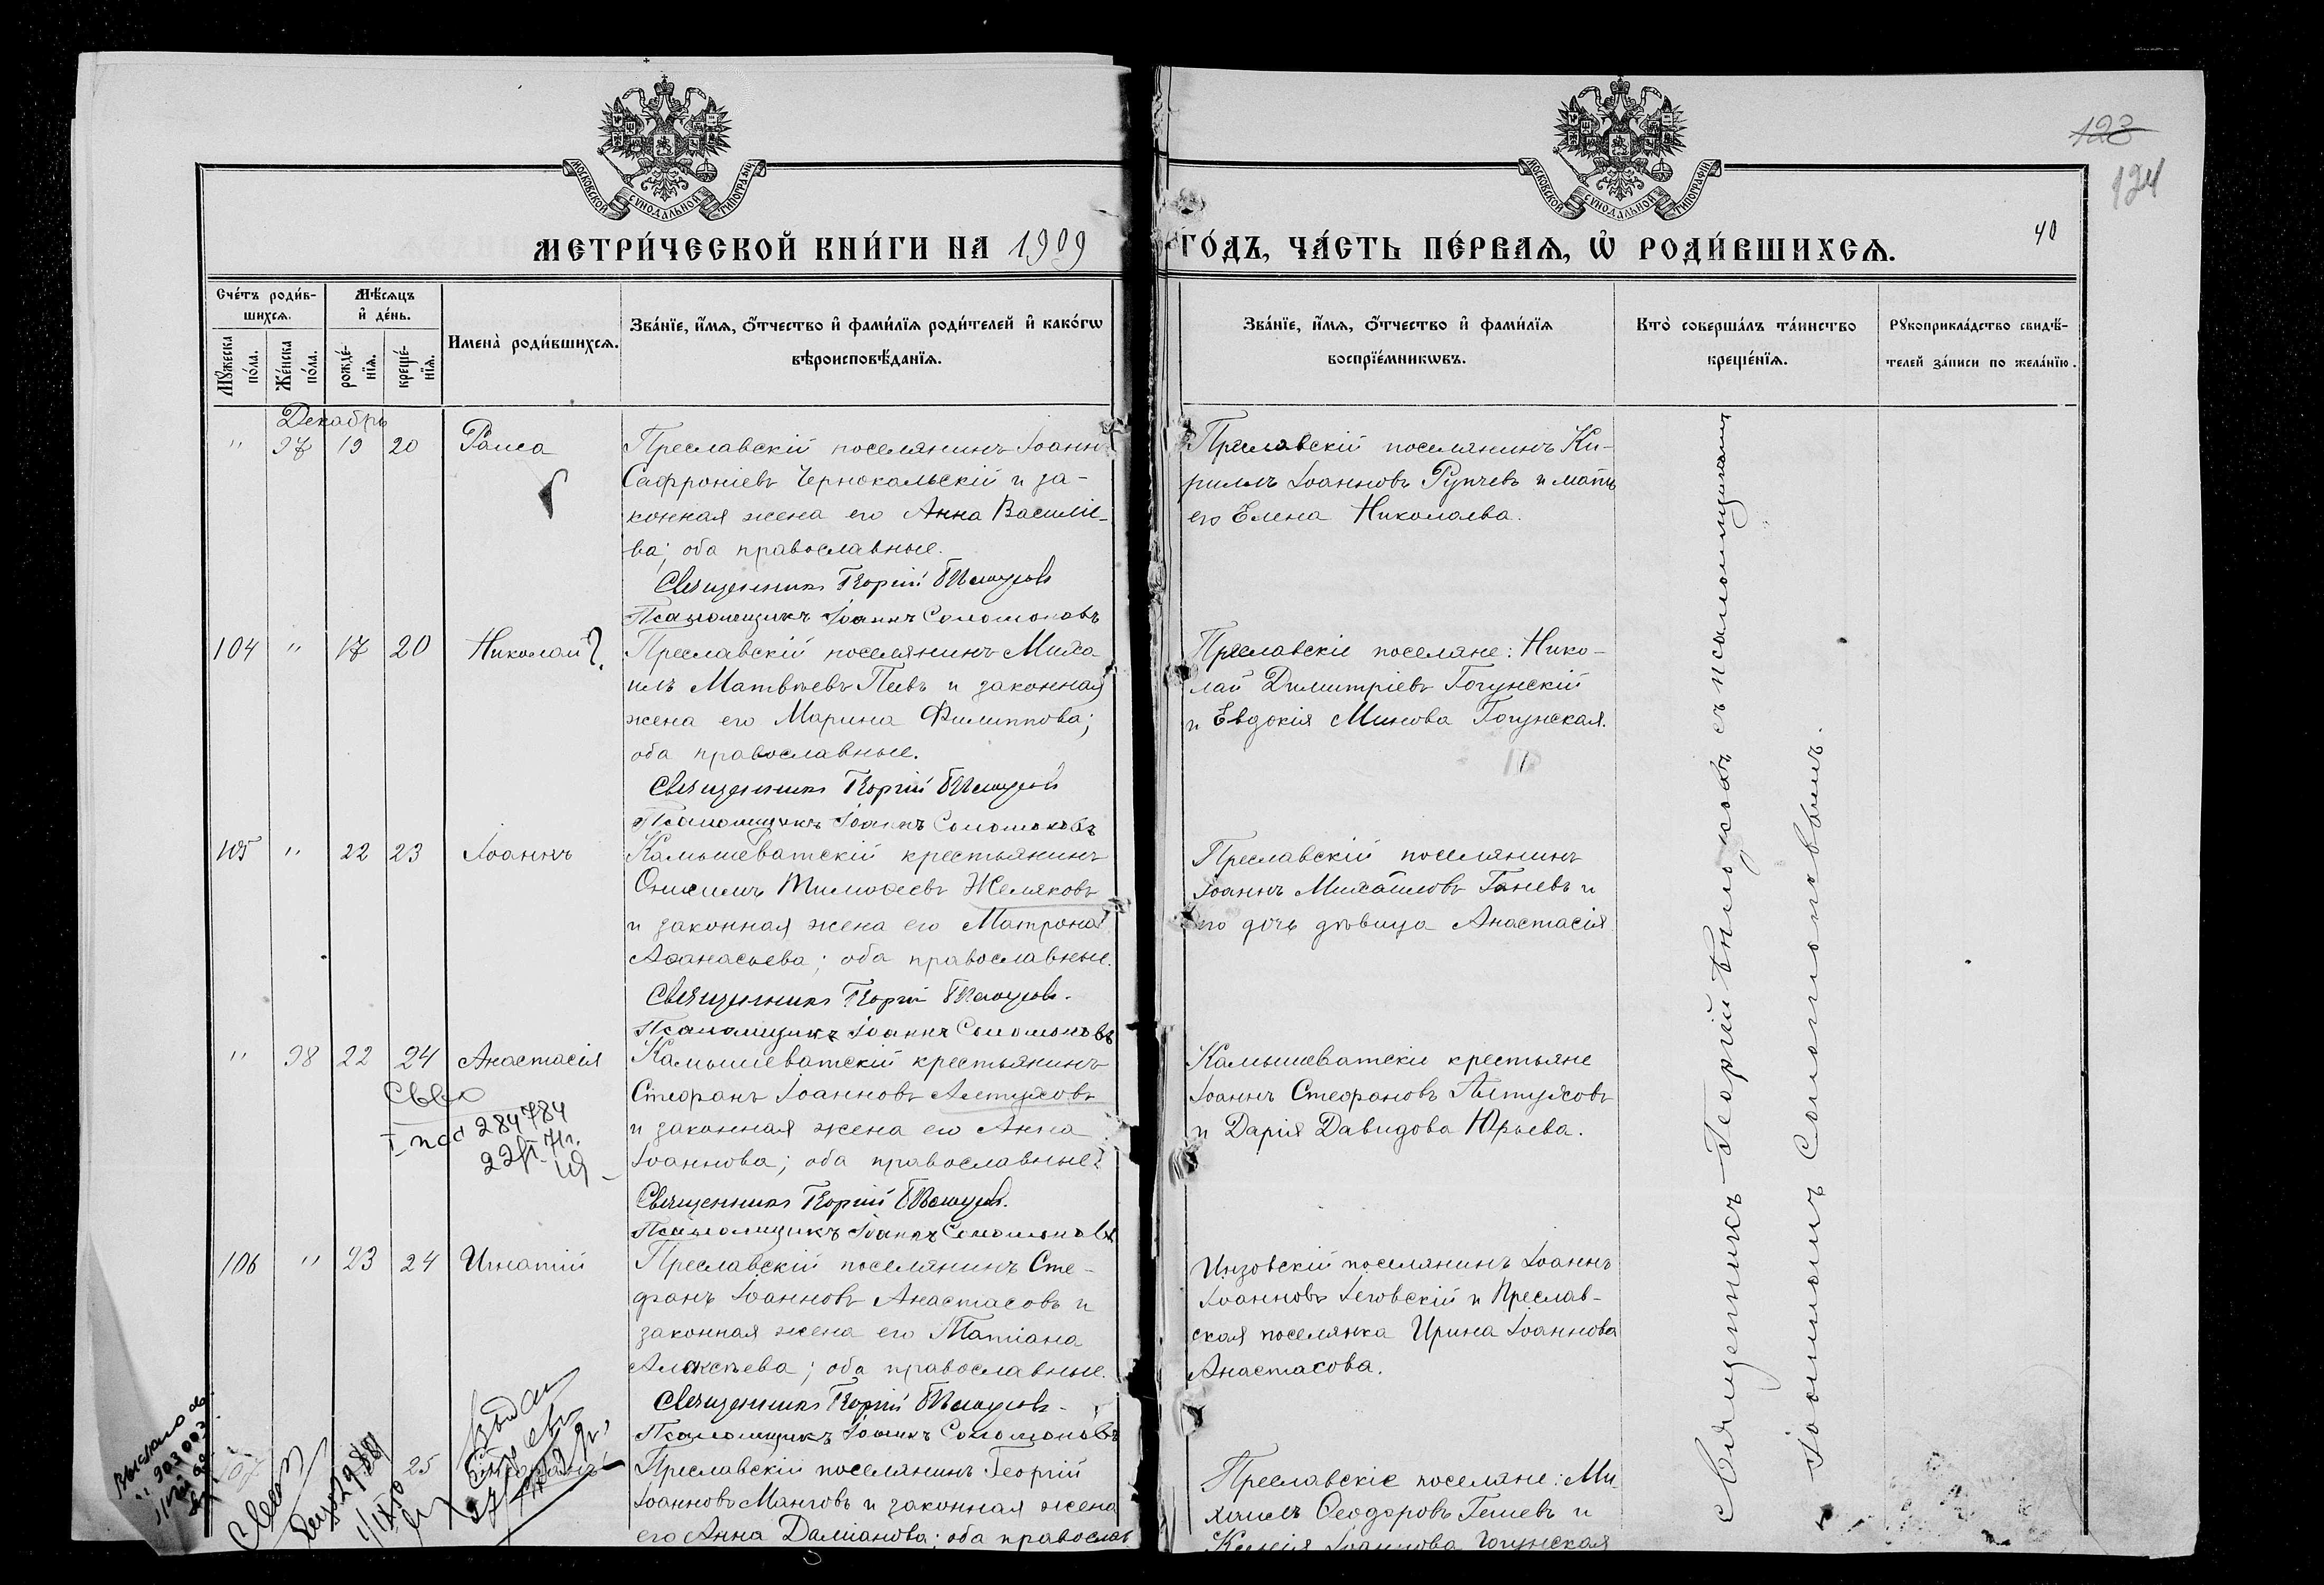 МОСКОВСКОЙ СУНОДАЛЬНОЙ ТИПОГРАФІИ
МОСКОВСКОЙ СУНОДАЛЬНОЙ ТИПОГРАФІИ
123
124
40
МЕТРИ́ЧЕСКОЙ КНИ́ГИ НА 1909 ГО́ДЪ, ЧА́СТЬ ПЕ́РВАѦ, Ѡ РОДИ́ВШИХСѦ.
Сче́тъ роди́вшихсѧ.
Мѣ́сѧцъ и҆ де́нь.
Мꙋ́жеска по́ла.
Же́нска по́ла.
рожде́нїѧ.
креще́нїѧ.
Имена̀ роди́вшихсѧ.
Зва́нїе, и҆́мѧ, ѻ҆́тчество и҆ фами́лїѧ роди́телей и҆ како́гѡ
вѣроисповѣ́данїѧ.
Зва́нїе, и҆́мѧ, ѻ҆́тчество и҆ фами́лїѧ
воспрїе́мникѡвъ.
Кто̀ соверша́лъ та́инство
креще́нїѧ.
Рꙋкоприкла́дство свидѣ́-
телей за́писи по жела́нїю.
Декабрь
" 97 19 20 Раиса
Преславскій поселянинъ Іоаннъ
Сафроніевъ Чернокальскій и за-
конная жена его Анна Василіе-
ва; оба православные.
Священникъ Георгій
Псаломщикъ Іоаннъ Соломоновъ
Преславскій поселянинъ Ки-
риллъ Іоанновъ Рупчевъ и мать
его Елена Николаева.
104 " 17 20 Николай
Преславскій поселянинъ Миха
илъ Матвѣевъ Пеевъ и законная
жена его Марина Филиппова;
оба православные.
Священникъ Георгій
Псаломщикъ Іоаннъ Соломоновъ
Преславскіе поселяне: Нико-
лай Димитріевъ Гогунскій
и Евдокія Минова Гогунская.
105 " 22 23 Іоаннъ
Камышеватскій крестьянинъ
Онисимъ Тимоѳеевъ Желяковъ
и законная жена его Матрона
Аѳанасьева; оба православные.
Священникъ Георгій
Псаломщикъ Іоаннъ Соломоновъ
Преславскій поселянинъ
Іоаннъ Михаиловъ Ганевъ и
его дочь дѣвица Анастасія
" 98 22 24 Анастасія
284784
Камышеватскій крестьянинъ
Стефанъ Іоанновъ Алтуховъ
и законная жена его Анна
Іоаннова; оба православные.
Священникъ Георгій
Псаломщикъ Іоаннъ Соломоновъ
Камышеватскіе крестьяне
Іоаннъ Стефановъ Алтуховъ
и Дарія Давидова Юрьева.
106 " 23 24 Игнатій
Преславскій поселянинъ Сте-
фанъ Іоанновъ Анастасовъ и
законная жена его Татіана
Алексѣева; оба православные.
Священникъ Георгій
Псаломщикъ Іоаннъ Соломоновъ
Инзовскій поселянинъ Іоаннъ
Іоанновъ и Преслав-
ская поселянка Ирина Іоаннова
Анастасова.
107 25
Преславскій поселянинъ Георгій
Іоанновъ Манговъ и законная жена
его Анна Даміанова; оба православ
Преславскіе поселяне: Ми
хаилъ Ѳеодоровъ Гешевъ и
Ксенія Іоаннова Гогунская
Священникъ Георгій съ псаломщикомъ
Іоанномъ Соломоновымъ.